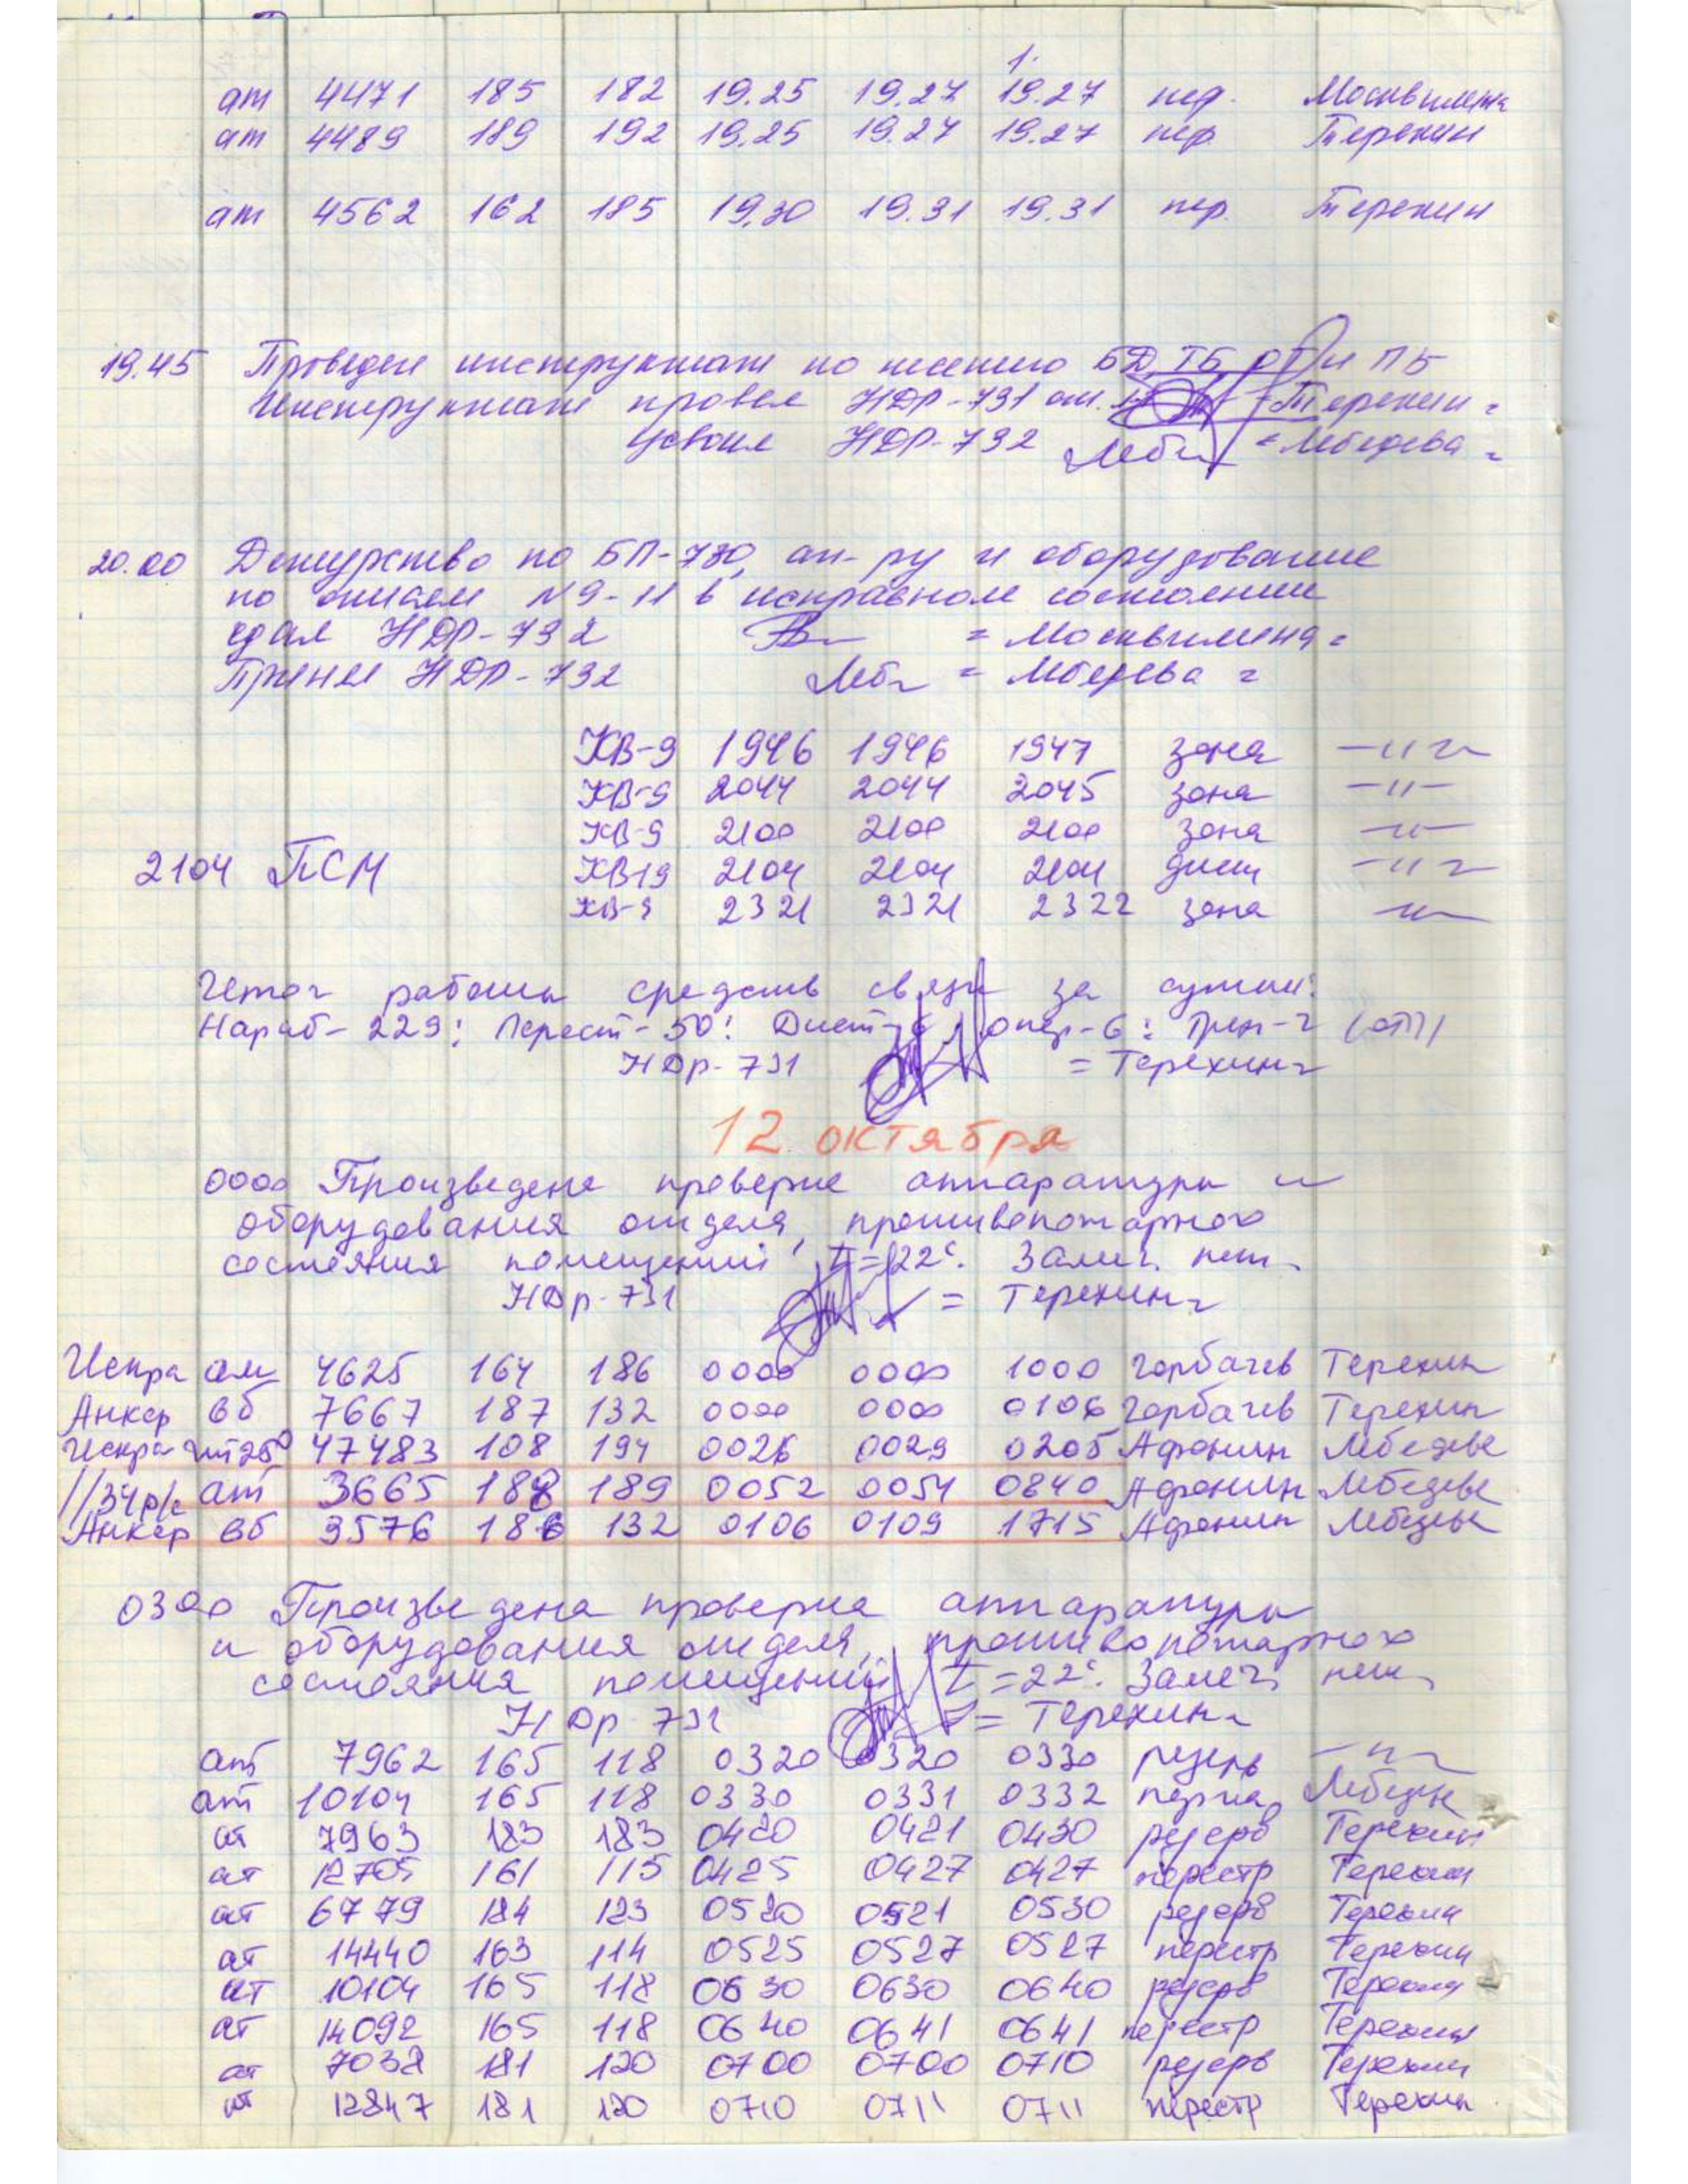 1.
ат 4471 185 182 19.25 19.27 19.27 пер. Москвитина
ат 4489 189 192 19.25 19.27 19.27 пер. Терехин
ат 4562 162 185 19.30 19.31 19.31 пер. Терехин
19.45 Проведен инструктаж по несению БД, ТБ, и ПБ
Инструктаж провел НДР-731 = Терехин =
усвоил НДР-732 Леб = Лебедева =
20.00 Дежурство по БП-730, ап-ру и оборудование
по описям №9-11 в исправном состоянии
сдал НДР-732 = Москвитина =
Принял НДР-732 Леб = Лебедева =
КВ-9 1946 1946 1947 зона —"—
КВ-9 2044 2044 2045 зона —"—
КВ-9 2100 2100 2100 зона —"—
2104 ПСМ КВ19 2104 2104 2104 дист —"—
КВ-9 2321 2321 2322 зона —"—
Итог работы средств связи за сутки:
Нараб-229; Перест-50; Дист-6, опер-6; Трен-2 (ОТП)
НДр-731 = Терехин=
12 октября
0000 Произведена проверка аппаратуры и
оборудования отдела, противопожарного
состояния помещений, t=22°. Замеч. нет.
НДр-731 = Терехин=
Искра ат 4625 164 186 0000 0000 1000 Горбачев Терехин
Анкер вб 7667 187 132 0000 0000 0106 Горбачев Терехин
Искра 47483 108 194 0026 0029 0205 Афонин Лебедева
//34р/с ат 3665 188 189 0052 0054 0840 Афонин Лебедева
Анкер вб 3576 186 132 0106 0109 1715 Афонин Лебедева
0300 Произведена проверка аппаратуры
и оборудования отдела, противопожарного
состояния помещений, t=22°. Замеч. нет.
НДр 731 = Терехин=
ат 7962 165 118 0320 0320 0330 резерв —"—
ат 10104 165 118 0330 0331 0332 Лебедева
ат 7963 183 183 0420 0421 0430 резерв Терехин
ат 12705 161 115 0425 0427 0427 перестр Терехин
ат 6779 184 123 0520 0521 0530 резерв Терехин
ат 14440 163 114 0525 0527 0527 перестр Терехин
ат 10104 165 118 0630 0630 0640 резерв Терехин
ат 14092 165 118 0640 0641 0641 перестр Терехин
ат 7038 181 120 0700 0700 0710 резерв Терехин
ат 12847 181 120 0710 0711 0711 перестр Терехин